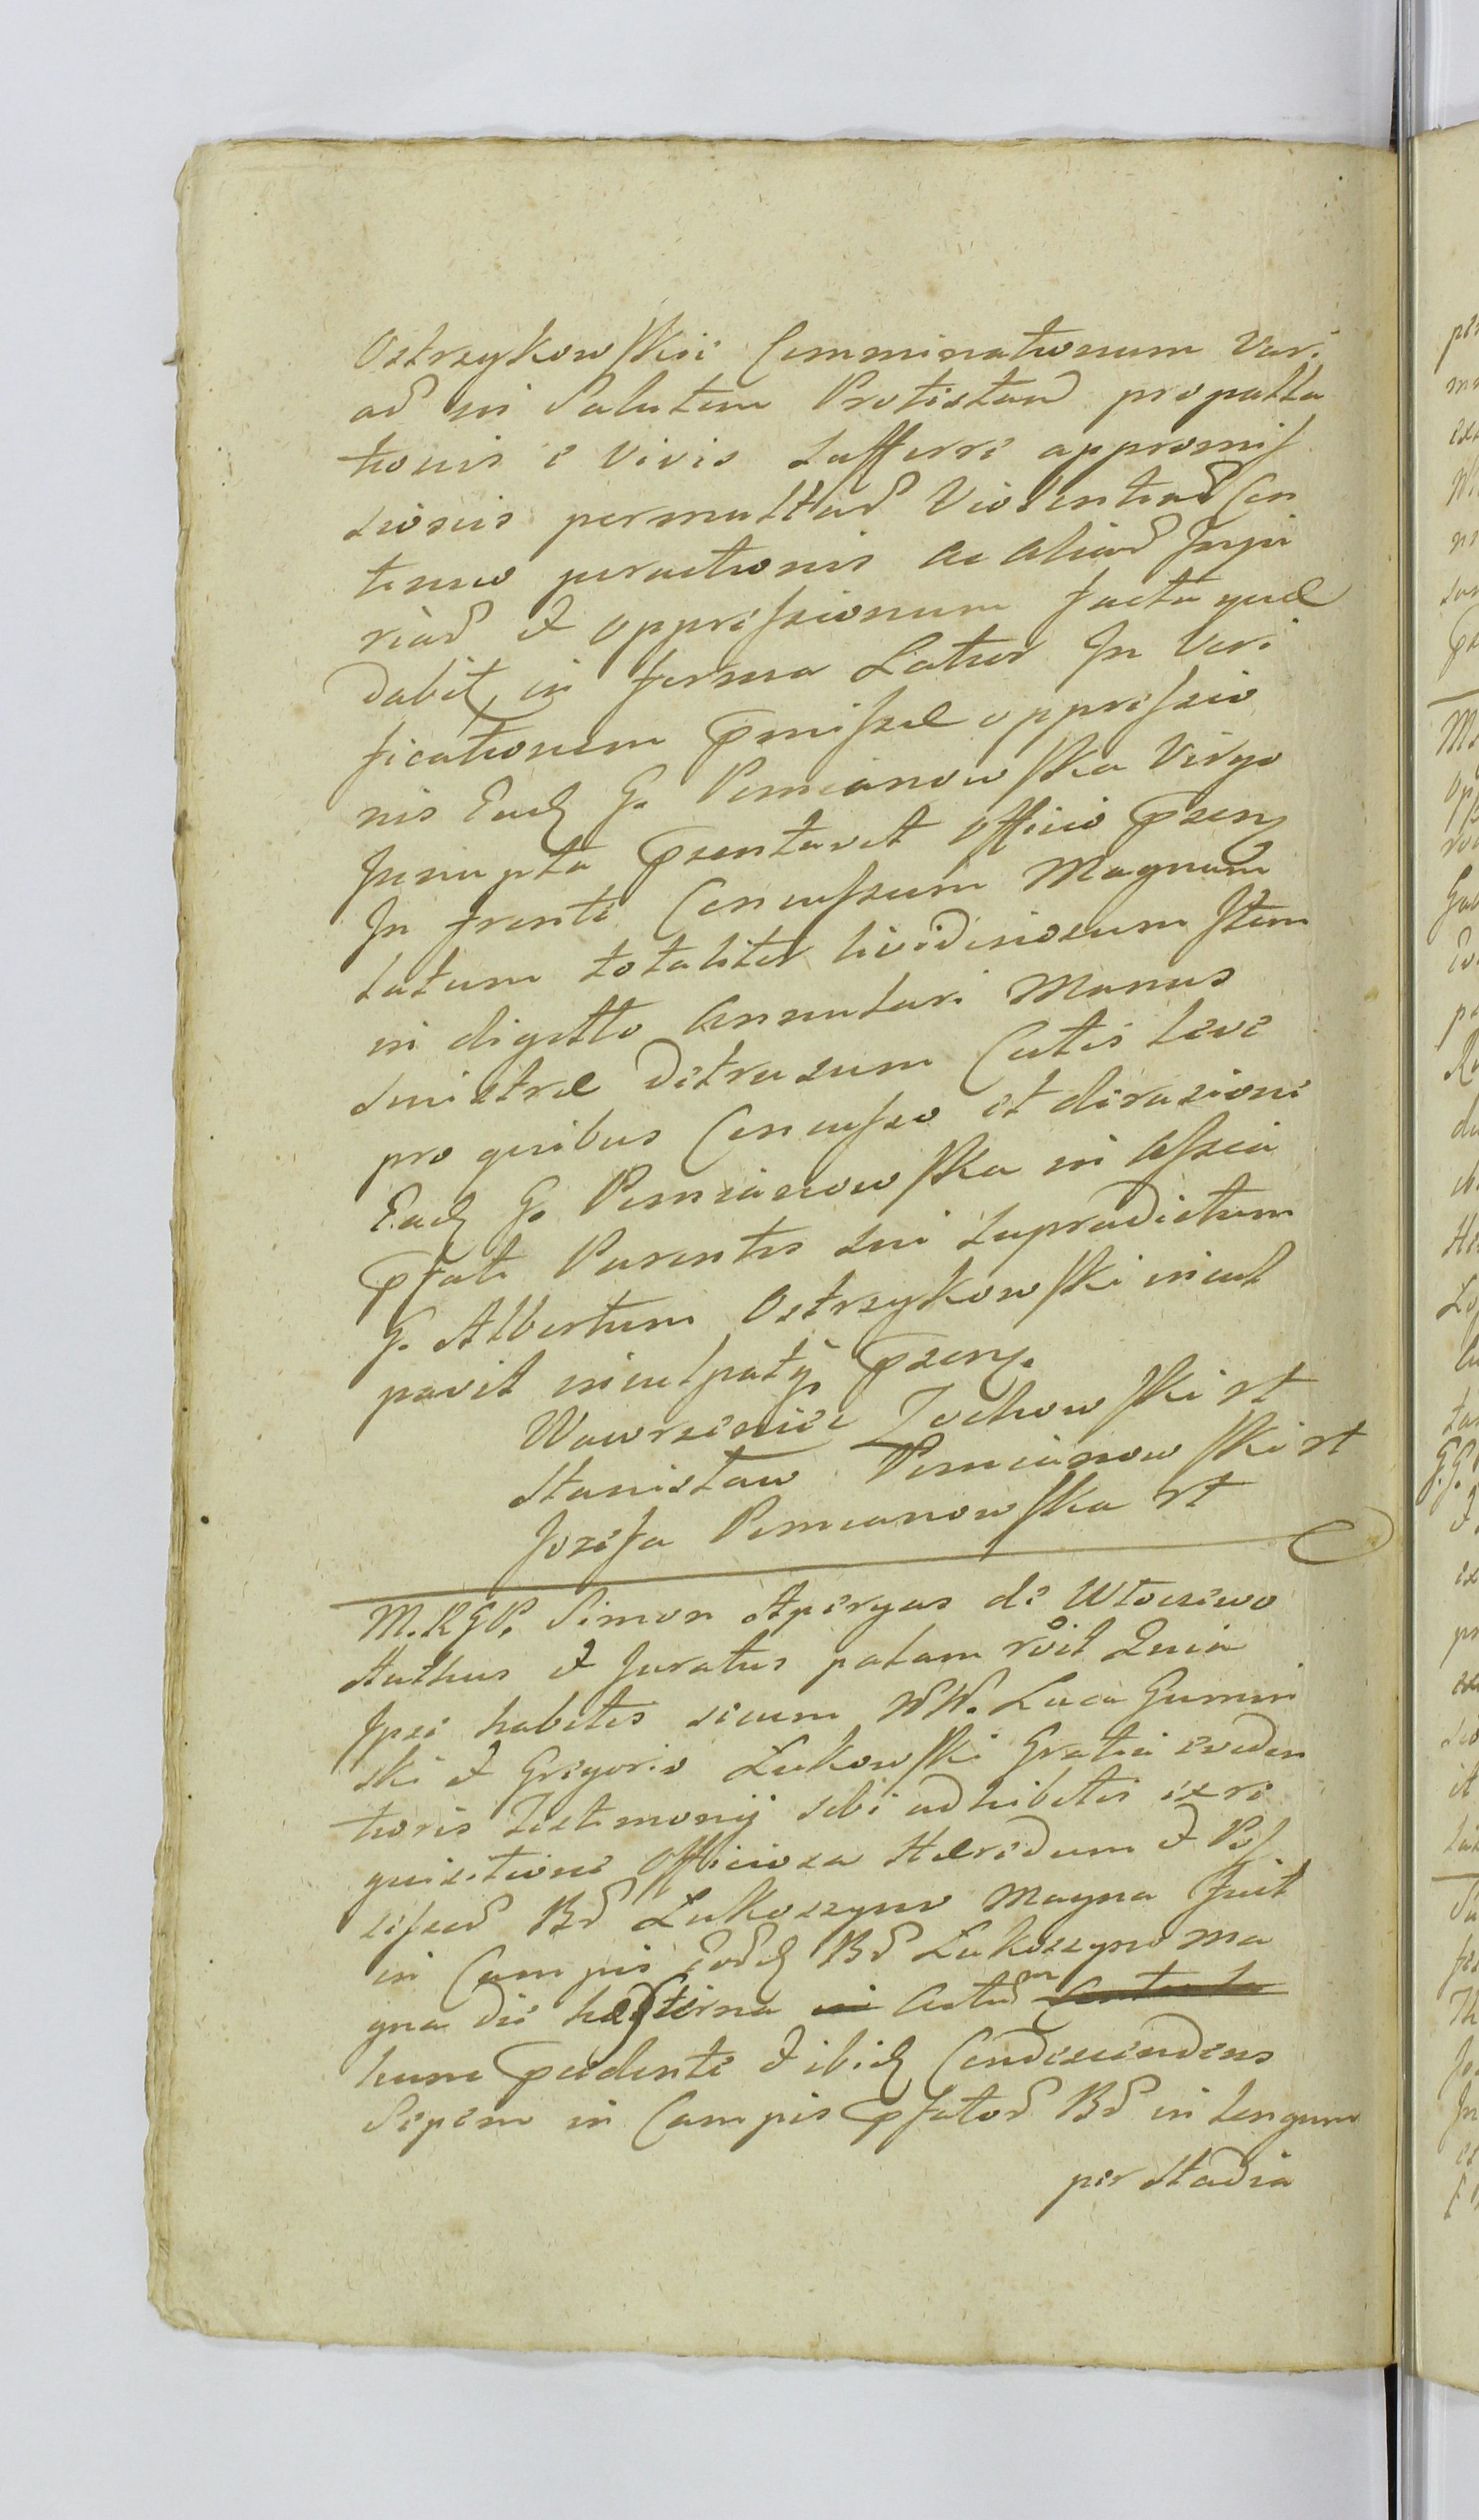 Ostrzykowskii Comminationum Vari
aȓ in Salutem Protestanȓ propalla
tionis e vivis sufferri appromis
sionis permultaȓ Violentiaȓ Con
tinuo peractionis ac aliaȓ Inju
riaȓ et oppressionum facta quæ
dabit in forma Latior In Veri
ficationem pmissæ oppressio
nis Eadꝫ G. Pomianowska Virgo
Innupta psentavit officio psenꝫ
In fronte Concussum Magnum
latum totaliter lividinosum Item
in digitto Annulari Manus
sinistræ Detrusum Cutis leve
pro quibus Concusso et dirasione
Eadꝫ G. Pomianowska in Assia
pfati Parentis sui supradictum
G. Albertum Ostrzykowski incul
pavit inculpatqꝫ psenꝫ.
Wawrzeniec Zochowski st
Stanisław Pomianowski st
Jozefa Pomianowska st
M.RGP. Simon Apergus de Włoczewo
Authus et Juratus palam röit Quia
Ipse habitis secum NN. Luca Gumin
ski et Gregorio Łukowski Gratia eviden
tioris Testimonij sibi adhibitis ex re
quisitione Officiosa Hæredum et Pos
sessoȓ Bȓ Łukoszyno Magna fuit
in Campis eoȓdꝫ Bȓ Łukoszyno Ma
gna die hesterna in Actuȓm
hunc pcedente et ibidꝫ Condescendens
Sepem in Campis pfatoȓ Bȓ in longum
per Stadia